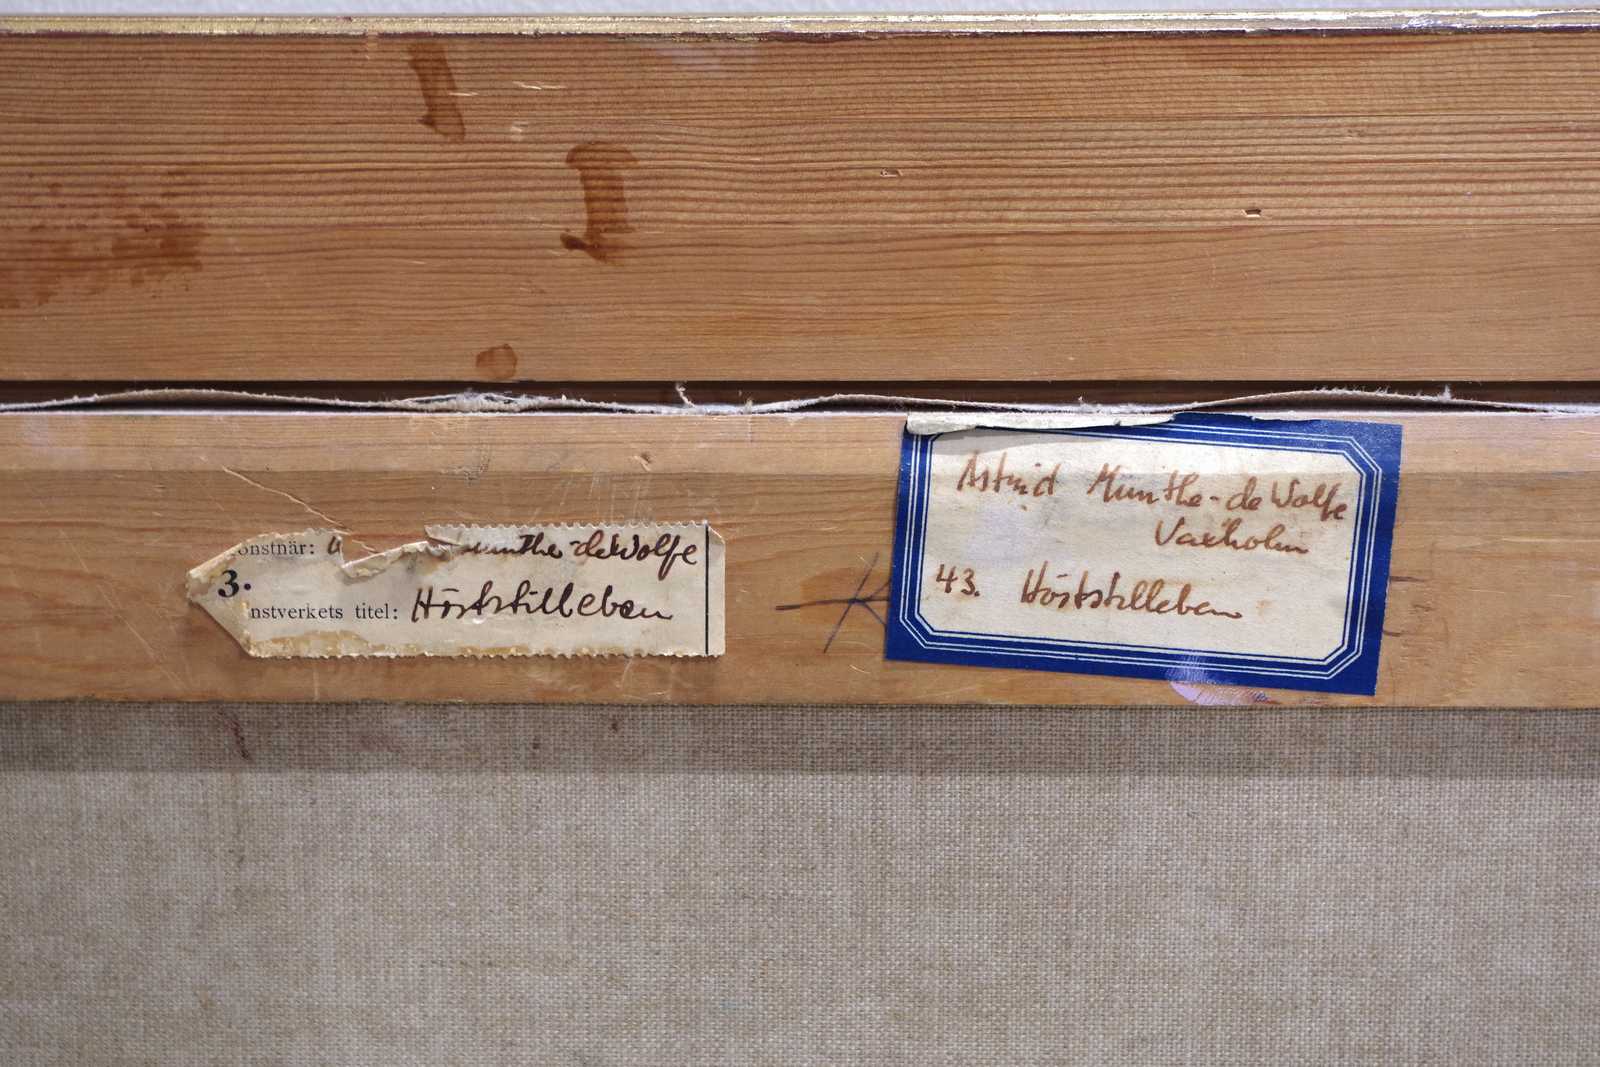 onstnär: Munthe-deWolfe
3.
nstverkets titel: Höststilleben
Astrid Munthe-de Wolfe
Vaxholm
43. Höststilleben